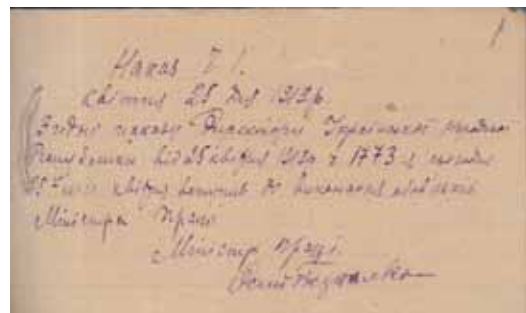 1
Наказ Ч 1.
квітня 25 дня 1919 р.
Згідно наказу Директорії Української Народньої
Республіки від 25 квітня 1919 р. ч. 1773 я сьогодня
25го квітня вступив до виконання обовязків
Міністра Праці
Міністр Праці